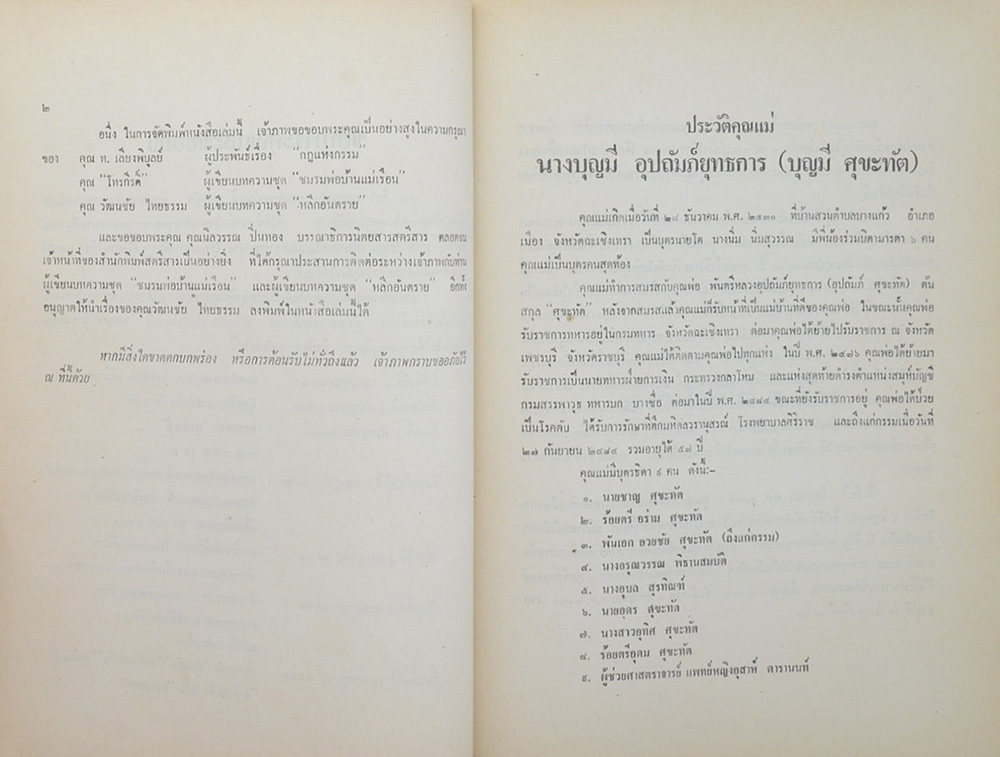 ๒
อนึ่ง ในการจัดพิมพ์หนังสือเล่มนี้ เจ้าภาพขอขอบพระคุณเป็นอย่างสูงในความกรุณา
ของ คุณ ท. เลียงพิบูลย์ ผู้ประพันธ์เรื่อง "กฎแห่งกรรม"
คุณ "โทรภิรดี" ผู้เขียนบทความชุด "ชมรมพ่อบ้านแม่เรือน"
คุณ วัฒนชัย ไทยธรรม ผู้เขียนบทความชุด "หลีกอันตราย"
และขอขอบพระคุณ คุณนิลวรรณ ปิ่นทอง บรรณาธิการนิตยสารสตรีสาร ตลอดจน
เจ้าหน้าที่ของสำนักพิมพ์สตรีสารเป็นอย่างยิ่ง ที่ได้กรุณาประสานการติดต่อระหว่างเจ้าภาพกับท่าน
ผู้เขียนบทความชุด "ชมรมพ่อบ้านแม่เรือน" และผู้เขียนบทความชุด "หลีกอันตราย" อีกทั้ง
อนุญาตให้นำเรื่องของคุณวัฒนชัย ไทยธรรม ลงพิมพ์ในหนังสือเล่มนี้ได้
หากมีสิ่งใดขาดตกบกพร่อง หรือการต้อนรับไม่ทั่วถึงแล้ว เจ้าภาพกราบขออภัยไว้
ณ ที่นี้ด้วย
ประวัติคุณแม่
นางบุญมี อุปถัมภ์ยุทธการ (บุญมี ศุขะทัต)
คุณแม่เกิดเมื่อวันที่ ๒๘ ธันวาคม พ.ศ. ๒๔๓๐ ที่บ้านสวนตำบลบางแก้ว อำเภอ
เมือง จังหวัดฉะเชิงเทรา เป็นบุตรนายโต นางนิ่ม นิ่มสุวรรณ มีพี่น้องร่วมบิดามารดา ๖ คน
คุณแม่เป็นบุตรคนสุดท้อง
คุณแม่ทำการสมรสกับคุณพ่อ พันตรีหลวงอุปถัมภ์ยุทธการ (อุปถัมภ์ ศุขะทัต) ต้น
สกุล "ศุขะทัต" หลังจากสมรสแล้วคุณแม่ก็รับหน้าที่เป็นแม่บ้านที่ดีของคุณพ่อ ในขณะนั้นคุณพ่อ
รับราชการทหารอยู่ในกรมทหาร จังหวัดฉะเชิงเทรา ต่อมาคุณพ่อได้ย้ายไปรับราชการ ณ จังหวัด
เพชรบุรี จังหวัดราชบุรี คุณแม่ได้ติดตามคุณพ่อไปทุกแห่ง ในปี พ.ศ. ๒๔๗๖ คุณพ่อได้ย้ายมา
รับราชการเป็นนายทหารฝ่ายการเงิน กระทรวงกลาโหม และแห่งสุดท้ายดำรงตำแหน่งสมุห์บัญชี
กรมสรรพาวุธ ทหารบก บางซื่อ ต่อมาในปี พ.ศ. ๒๔๘๔ ขณะที่ยังรับราชการอยู่ คุณพ่อได้ป่วย
เป็นโรคตับ ได้รับการรักษาที่ตึกมหิดลวรานุสรณ์ โรงพยาบาลศิริราช และถึงแก่กรรมเมื่อวันที่
๒๗ กันยายน ๒๔๘๔ รวมอายุได้ ๕๗ ปี
คุณแม่มีบุตรธิดา ๙ คน ดังนี้:–
๑. นายชาญ ศุขะทัต
๒. ร้อยตรี อร่าม ศุขะทัต
๓. พันเอก อวยชัย ศุขะทัต (ถึงแก่กรรม)
๔. นางอรุณวรรณ พิธานสมบัติ
๕. นางอุบล สุรทิณฑ์
๖. นายอุดร ศุขะทัต
๗. นางสาวอุทิศ ศุขะทัต
๘. ร้อยตรีอุดม ศุขะทัต
๙. ผู้ช่วยศาสตราจารย์ แพทย์หญิงอุสาห์ ดารานนท์